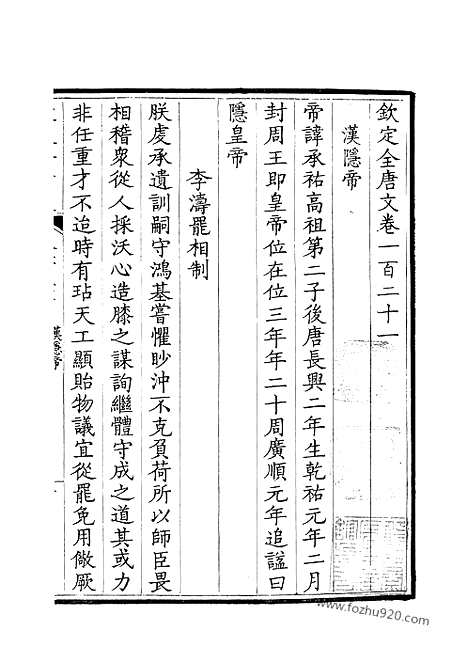 欽定全唐文卷一百二十一
漢隱帝
帝諱承祐高祖第二子後唐長興二年生乾祐元年二月
封周王即皇帝位在位三年年二十周廣順元年追諡曰
隱皇帝
李濤罷相制
朕虔承遺訓嗣守鴻基嘗懼眇沖不克負荷所以師臣畏
相稽衆從人採沃心造膝之謀詢繼體守成之道其或力
非任重才不迨時有玷天工顯貽物議宜從罷免用儆厥
漢隱帝
www.fozhu920.com